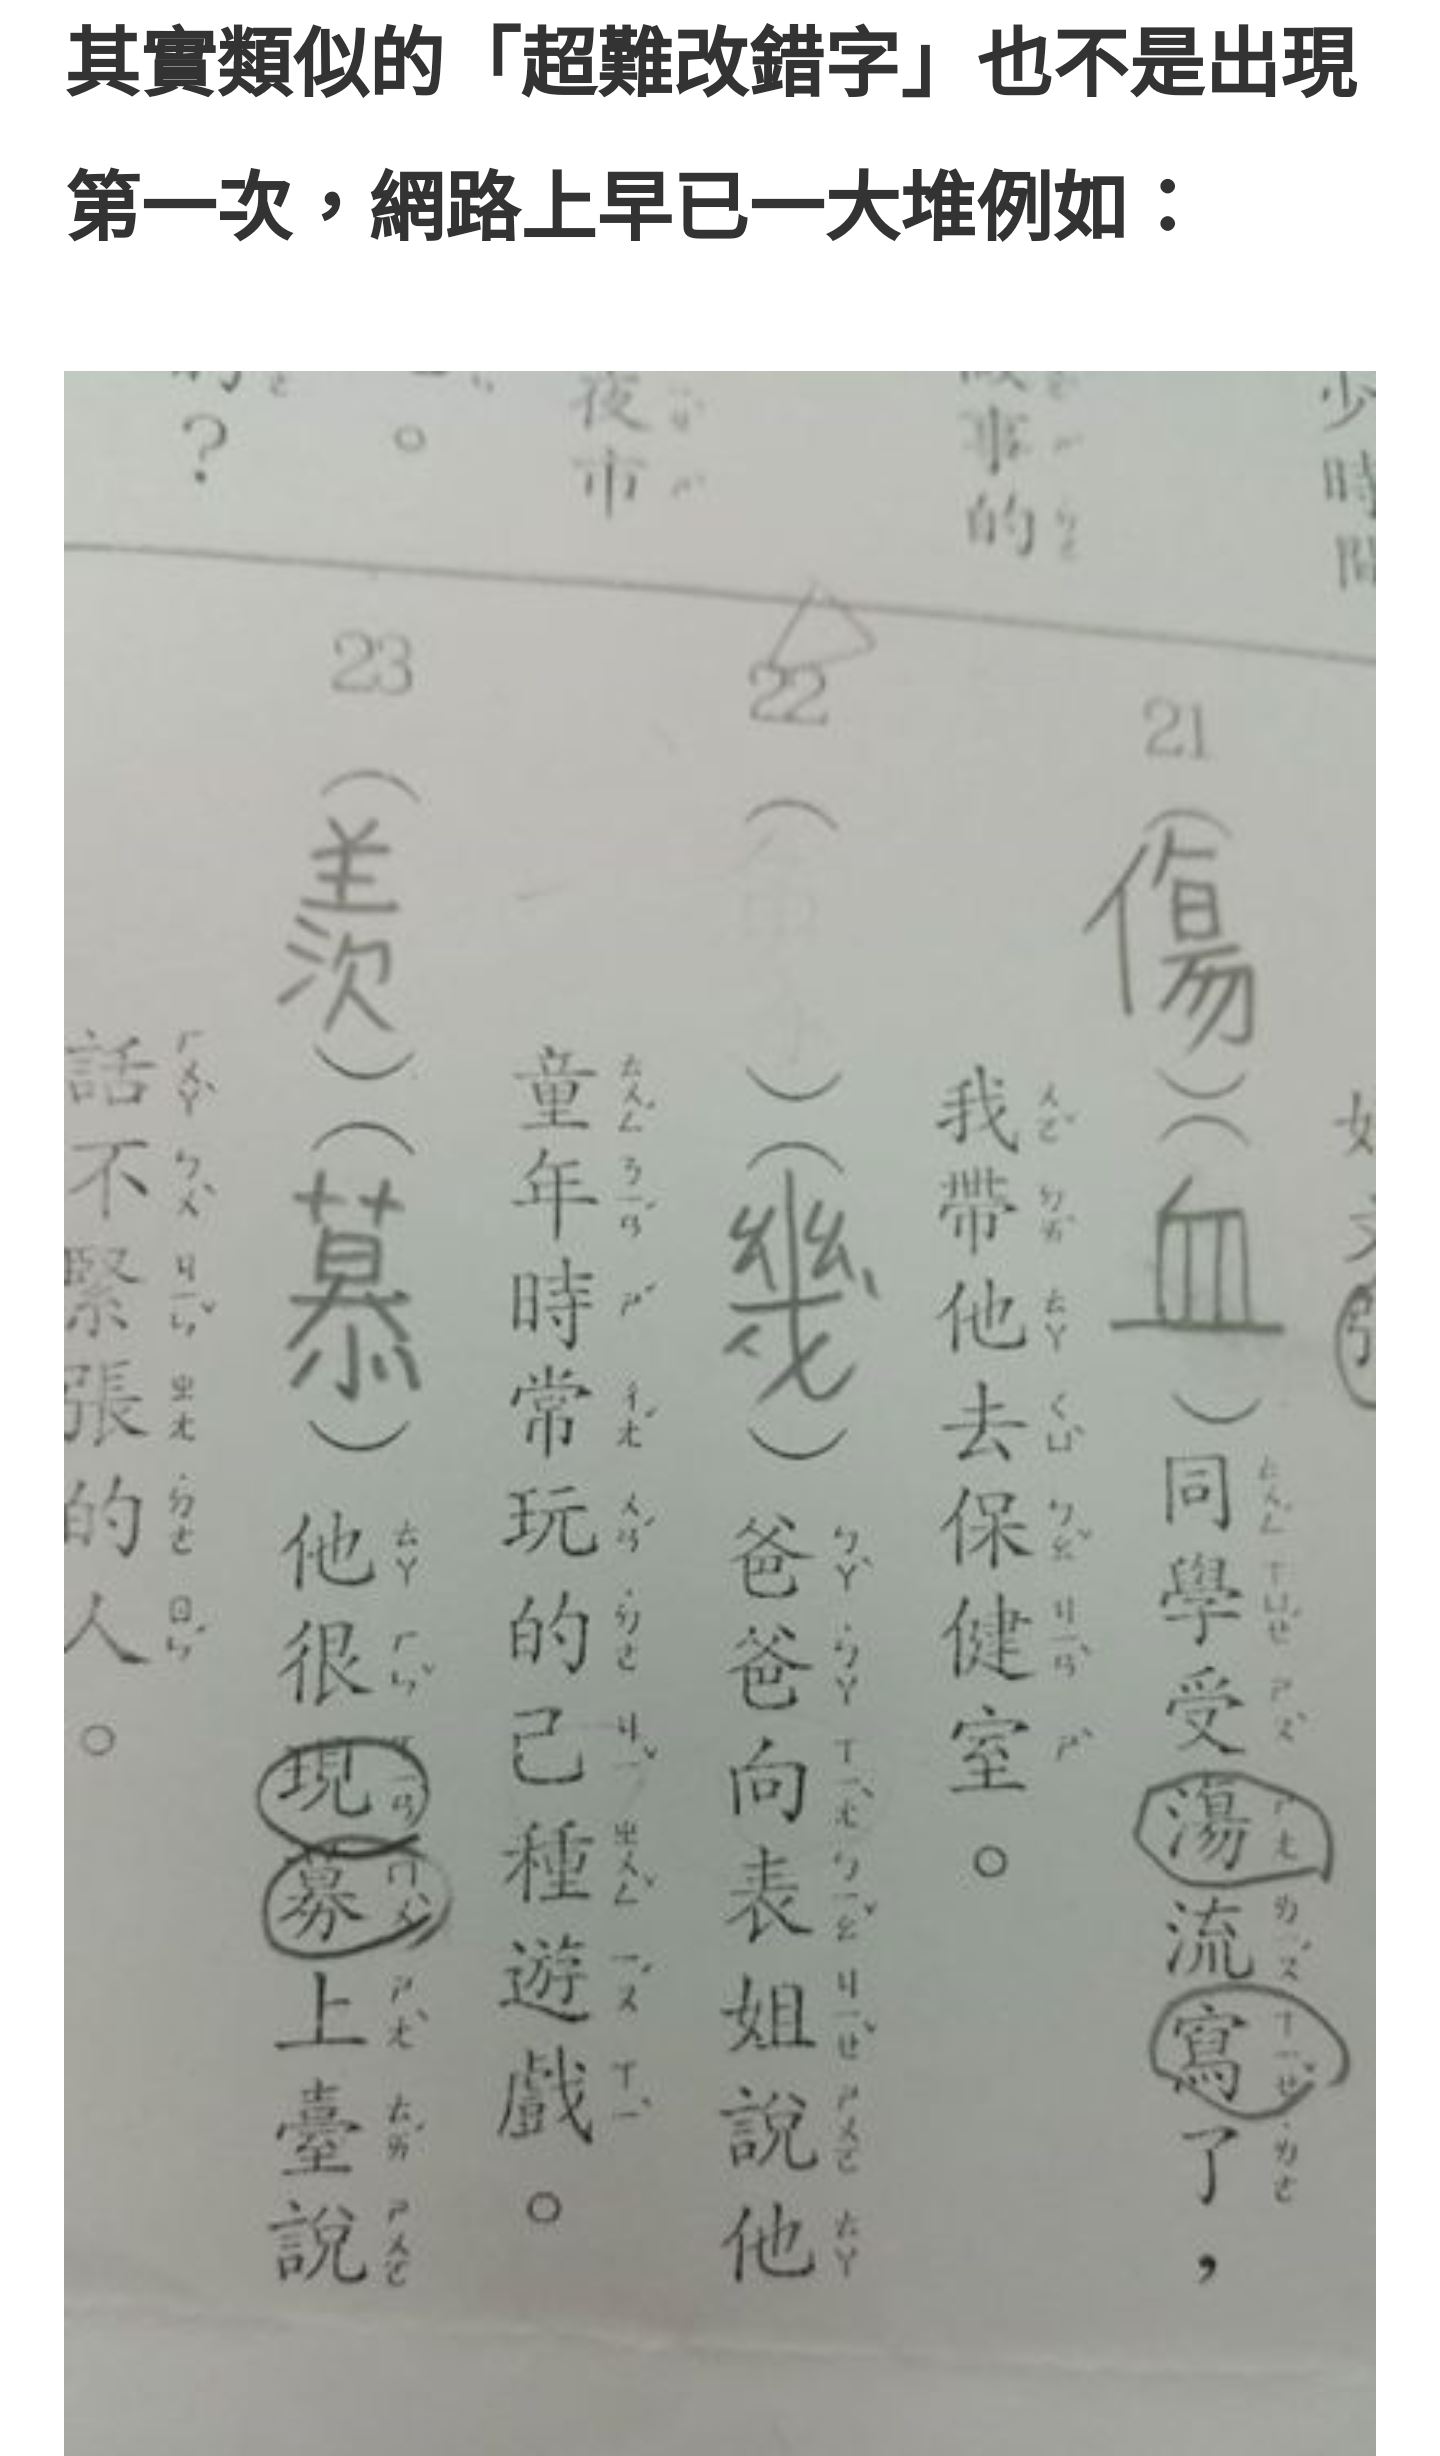 其實類似的「超難改錯字」也不是出現
第一次，網路上早已一大堆例如：
少時間
事的
夜市
。
？
21（傷）（血）同學受蕩流寫了，
我帶他去保健室。
22（ ）（幾）爸爸向表姐說他
童年時常玩的己種遊戲。
23（羨）（慕）他很現募上臺說
話不緊張的人。